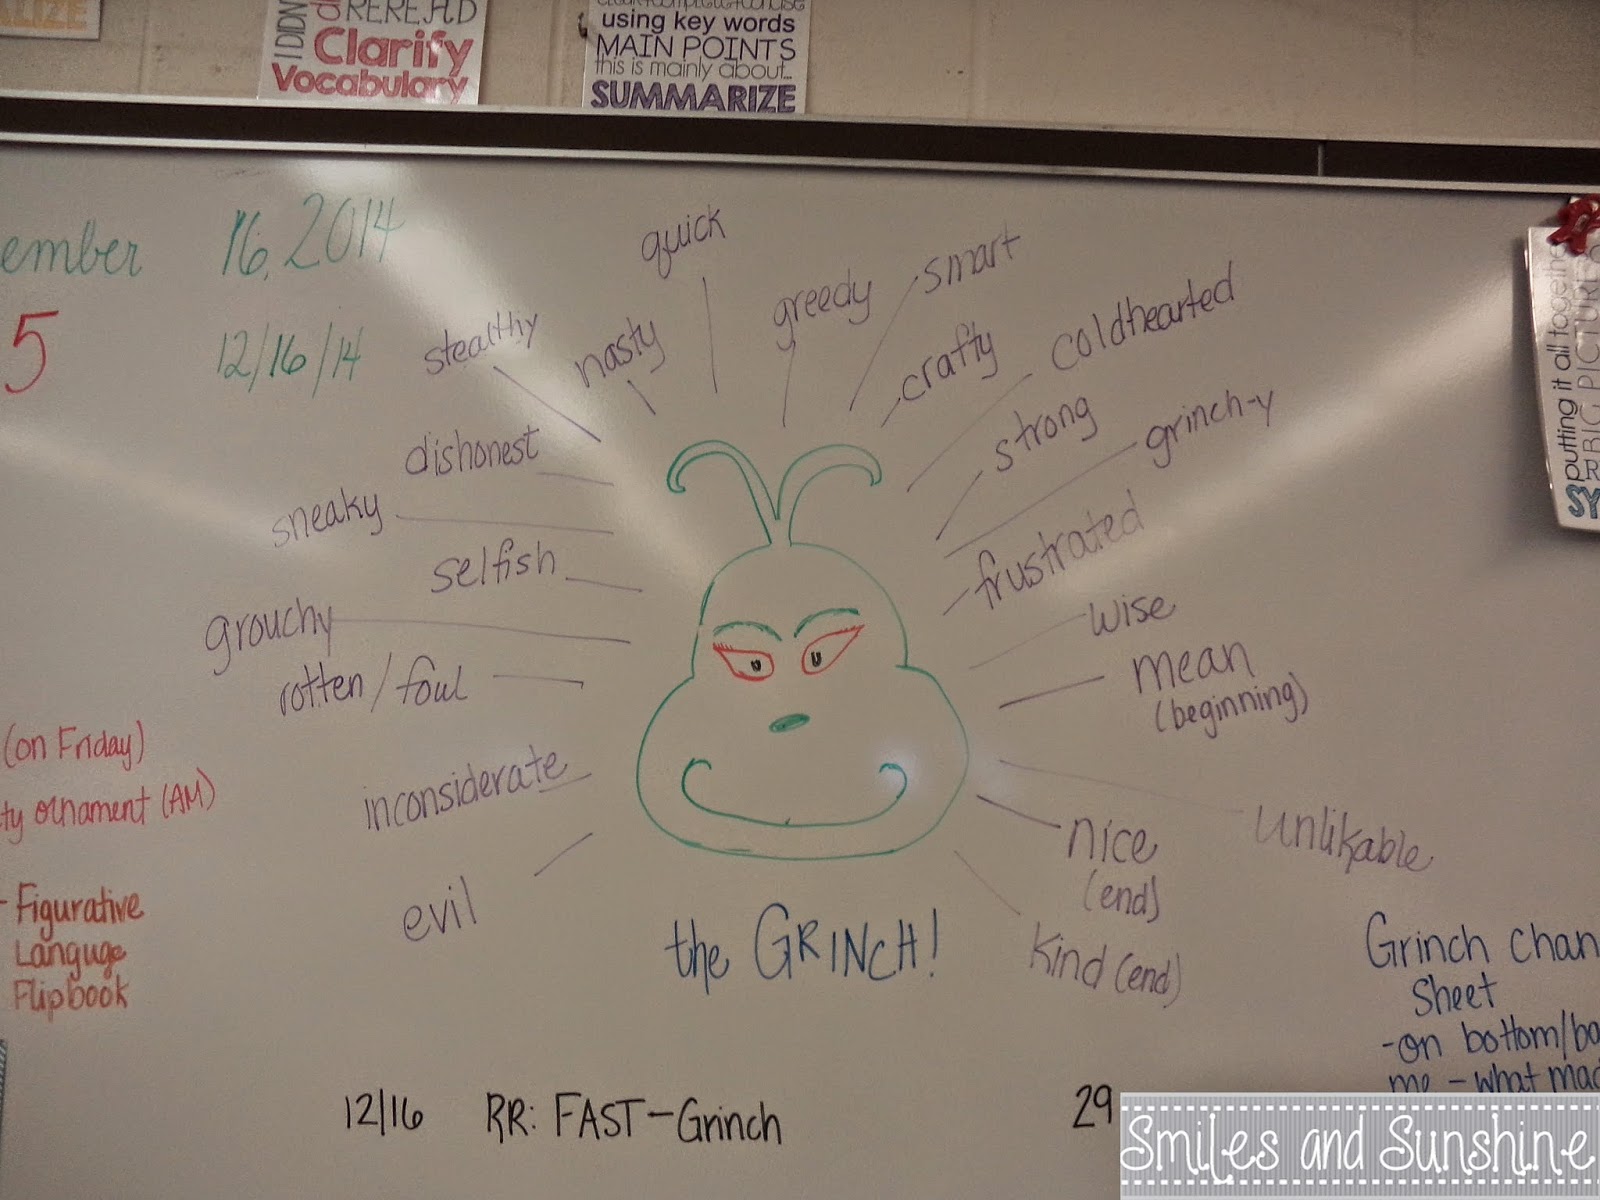 ALIZE
I DIDN'T
REREAD
Clarify
Vocabulary
using key words
MAIN POINTS
this is mainly about...
SUMMARIZE
ember 16, 2014
5
12/16/14
quick
smart
greedy
stealthy
nasty
coldhearted
crafty
dishonest
strong
grinch-y
sneaky
selfish
frustrated
grouchy
wise
rotten/foul
mean
(beginning)
inconsiderate
unlikable
nice
(end)
evil
the GRINCH!
Kind (end)
(on Friday)
ty ornament (AM)
- Figurative
Languge
Flipbook
Grinch Chan
Sheet
-on bottom/ba
me - what mad
putting it all together
BIG PICTURE
SY
12/16 RR: FAST-Grinch
29
Smiles and Sunshine